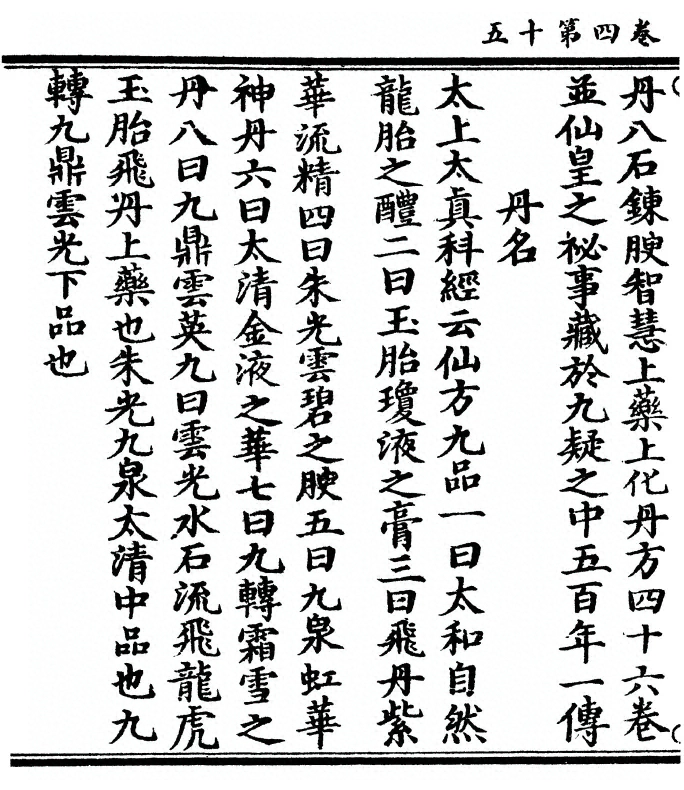 卷四第十五
丹八石鍊腴智慧上藥上化丹方四十六卷
並仙皇之祕事藏於九疑之中五百年一傳
丹名
太上太眞科經云仙方九品一曰太和自然
龍胎之醴二曰玉胎瓊液之膏三曰飛丹紫
華流精四曰朱光雲碧之腴五曰九泉虹華
神丹六曰太清金液之華七曰九轉霜雪之
丹八曰九鼎雲英九曰雲光水石流飛龍虎
玉胎飛丹上藥也朱光九泉太清中品也九
轉九鼎雲光下品也